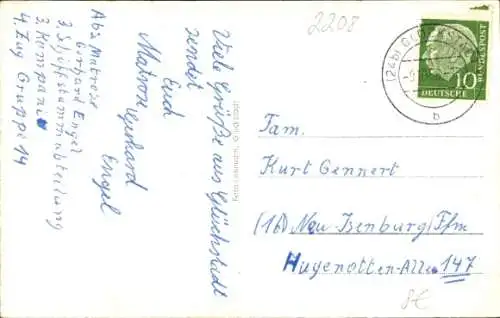 2208
Abs. Matrose
Gerhard Engel
3. Schiffsstammabteilung
3. Kompanie
4. Zug Gruppe 14
Viele Grüße aus Glückstadt
sendet
Euch
Matrose Gerhard
Engel
(24b) GLÜCKSTADT
b
10
DEUTSCHE
BUNDESPOST
Fam.
Kurt Gennert
(16) Neu Isenburg/Ffm
Hugenotten-Allee 147
8€